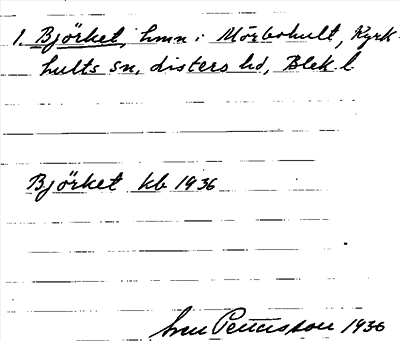 1. Björket, hmn i Mörbohult, Kyrk-
hults sn, Listers hd, Blek. l.
Björket kb 1936
Pettersson 1936